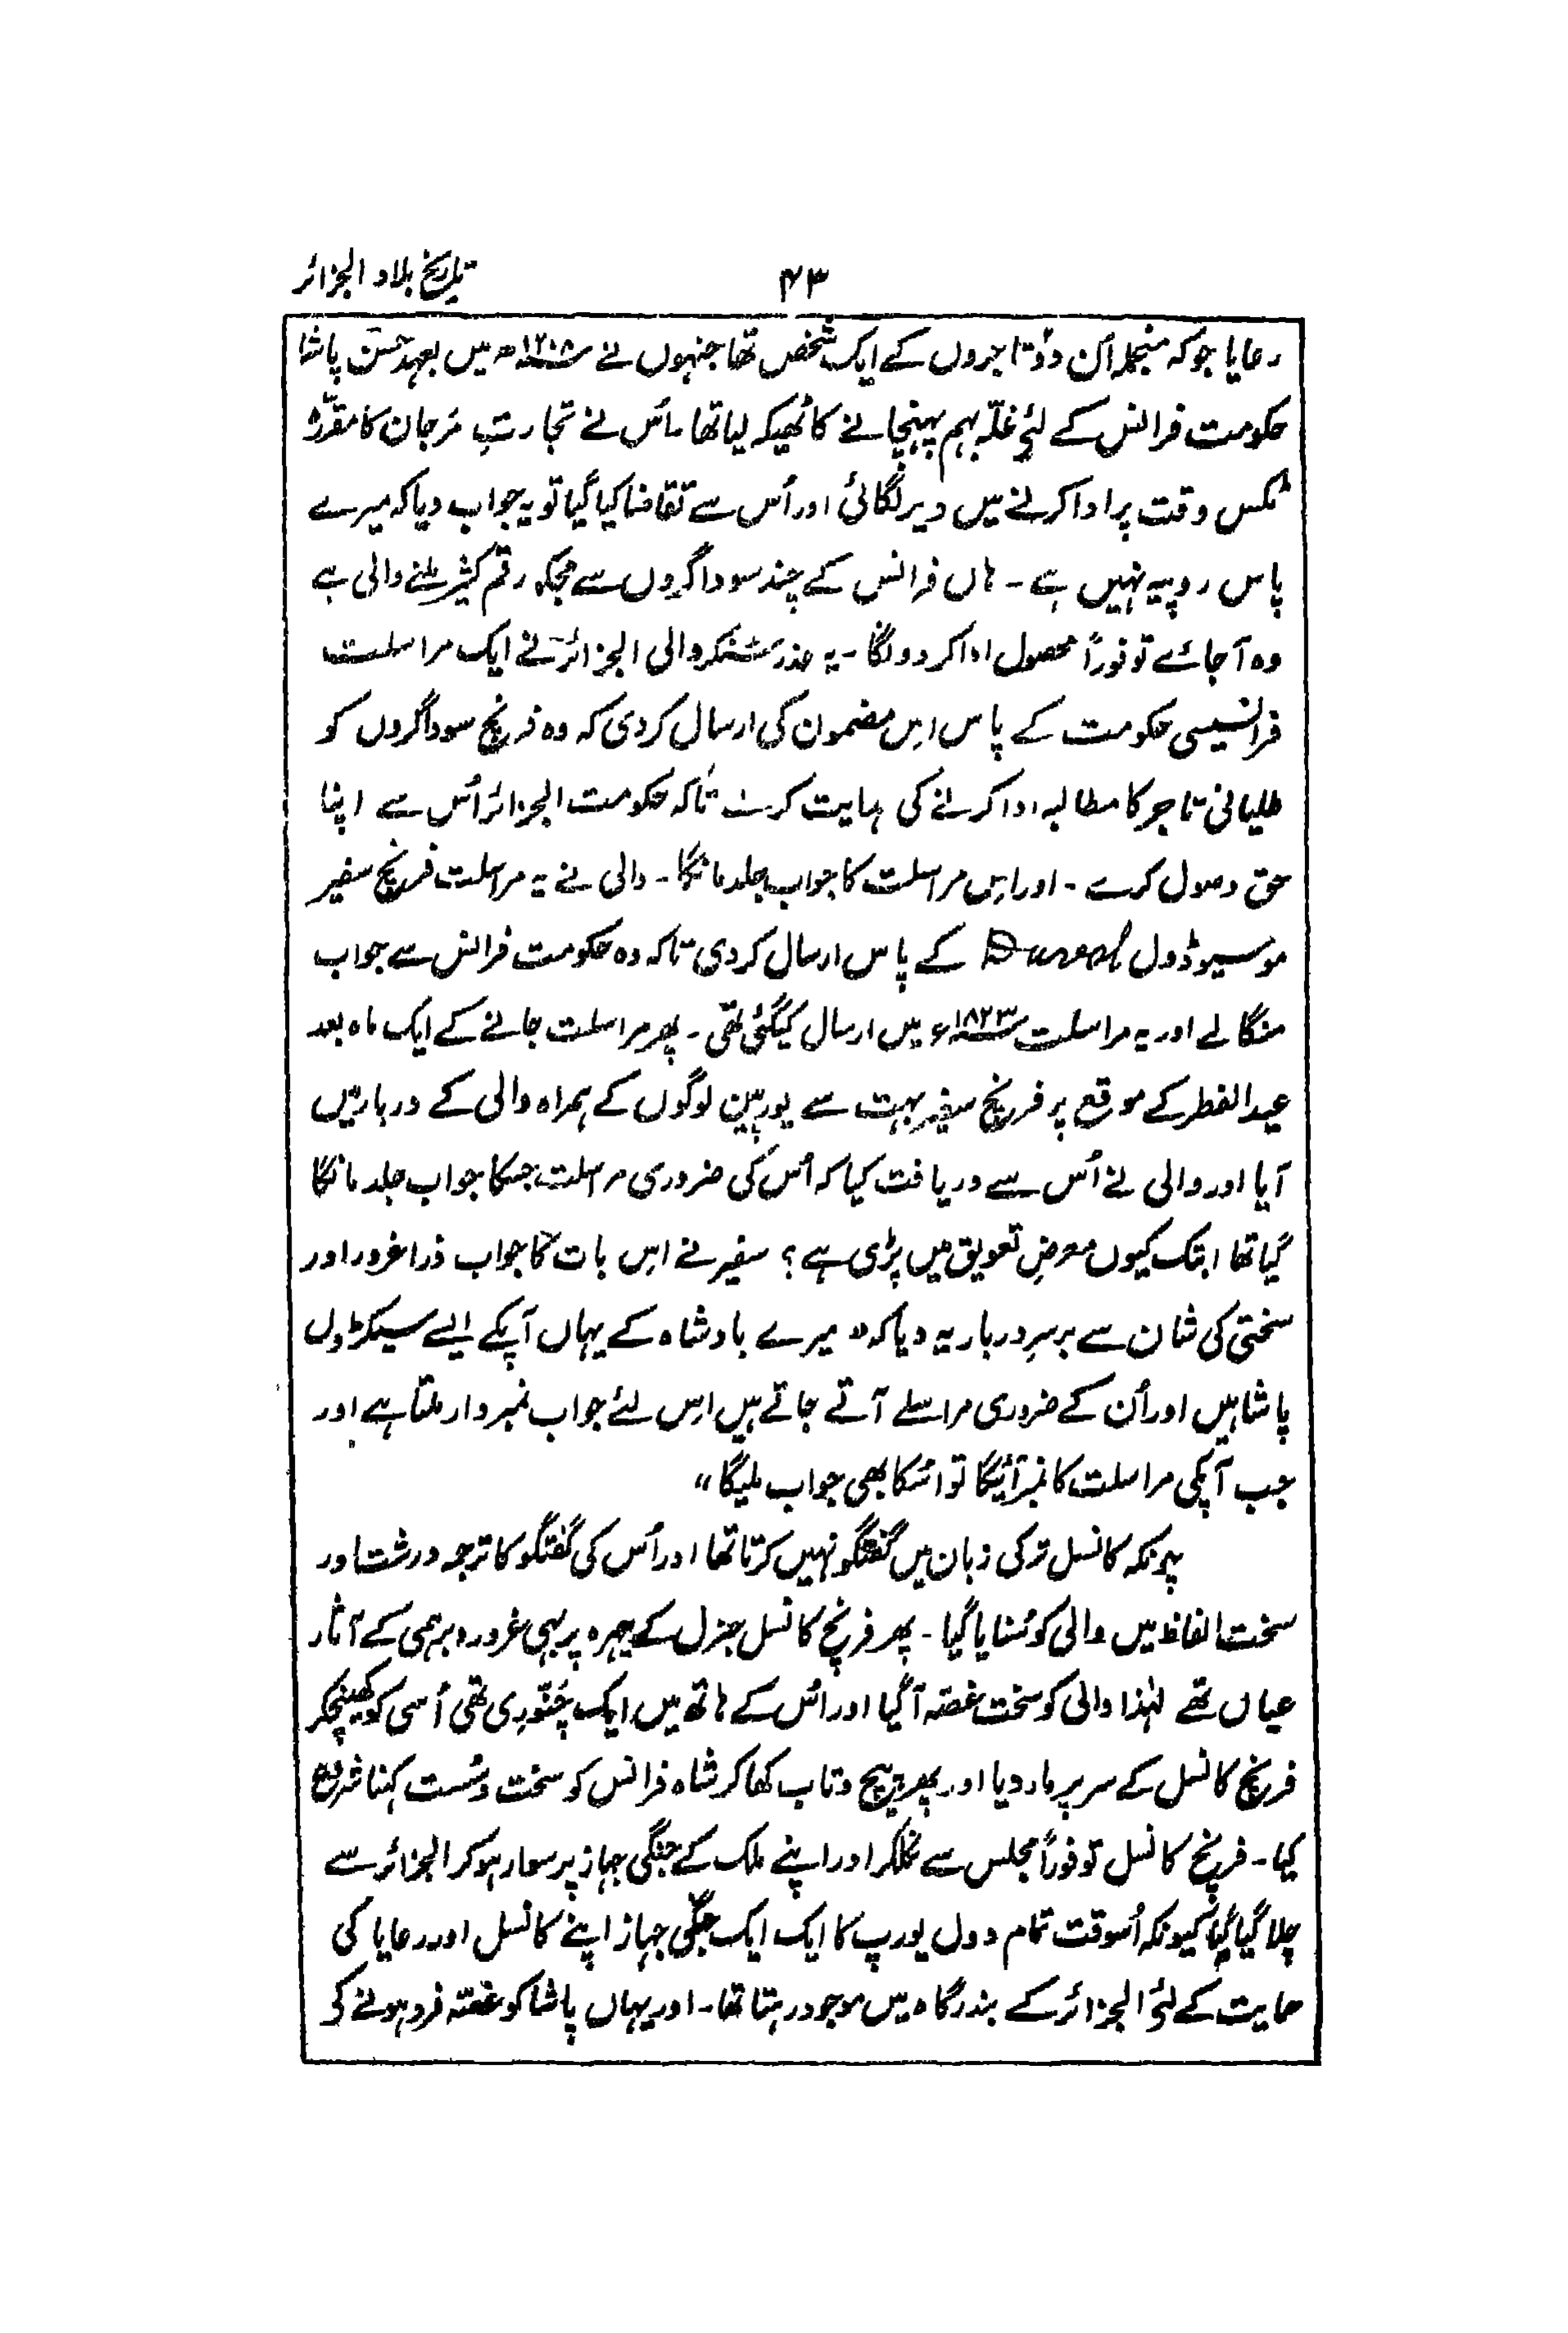 تاریخ بلاد الجزائر
۴۳
رعایا جوکہ منجملہ اُن دوتاجروں کے ایک شخص تھا جنہوں نے ۱۲۰۸ھ میں بعہد حسن پاشا
حکومت فرانس کے لئے غلّہ بہم پہنچانے کا ٹھیکہ لیا تھا اُس نے تجارتِ مَرجان کا مقرّرہ
ٹکس وقت پر ادا کرنے میں دیر لگائی اور اُس سے تقاضا کیا گیا تو یہ جواب دیا کہ میرے
پاس روپیہ نہیں ہے - ہاں فرانس کے چند سوداگروں سے مجکو رقم کثیر ملنے والی ہے
وہ آجائے تو فوراً محصول ادا کر دونگا - یہ عذر سُنکر والی الجزائر نے ایک مراسلت
فرانسیسی حکومت کے پاس اِس مضمون کی ارسال کردی کہ وہ فرنچ سوداگروں کو
طلیانی تاجر کا مطالبہ ادا کرنے کی ہدایت کرے تاکہ حکومت الجزائر اُس سے اپنا
حق وصول کرے - اور اِس مراسلت کا جواب جلد مانگا - والی نے یہ مراسلت فرنچ سفیر
موسیو ڈول Duval کے پاس ارسال کردی تاکہ وہ حکومت فرانس سے جواب
منگالے اور یہ مراسلت ۱۸۲۳ء میں ارسال کیگئی تھی - پھر مراسلت جانے کے ایک ماہ بعد
عیدالفطر کے موقع پر فرنچ سفیر بہت سے یورپین لوگوں کے ہمراہ والی کے دربار میں
آیا اور والی نے اُس سے دریافت کیا کہ اُس کی ضروری مراسلت جسکا جواب جلد مانگا
گیا تھا ابتک کیوں معرضِ تعویق میں پڑی ہے؟ سفیر نے اِس بات کا جواب ذرا غرور اور
سختی کی شان سے برسرِ دربار یہ دیا کہ “ میرے بادشاہ کے یہاں آپکے ایسے سیکڑوں
پاشا ہیں اور اُن کے ضروری مراسلے آتے جاتے ہیں اِس لئے جواب نمبر وار ملتا ہے اور
جب آپکی مراسلت کا نمبر آئیگا تو اُسکا بھی جواب ملیگا ”
چونکہ کانسل ترکی زبان میں گفتگو نہیں کرتا تھا اور اُس کی گفتگو کا ترجمہ درشت اور
سخت الفاظ میں والی کو سُنایا گیا - پھر فرنچ کانسل جنرل کے چہرہ پر بھی غرور و برہمی کے آثار
عیاں تھے لہٰذا والی کو سخت غصّہ آگیا اور اُس کے ہاتھ میں ایک چَنوّرِی تھی اُسی کو کھینچکر
فرنچ کانسل کے سر پر مار دیا اور پھر پیچ و تاب کھا کر شاہ فرانس کو سخت و سُست کہنا شروع
کیا - فرنچ کانسل تو فوراً مجلس سے نکلکر اور اپنے ملک کے جنگی جہاز پر سوار ہو کر الجزائر سے
چلا گیا کیونکہ اُسوقت تمام دول یورپ کا ایک ایک جنگی جہاز اپنے کانسل اور رعایا کی
حمایت کے لئے الجزائر کے بندرگاہ میں موجود رہتا تھا - اور یہاں پاشا کو غصّہ فرو ہونے کے